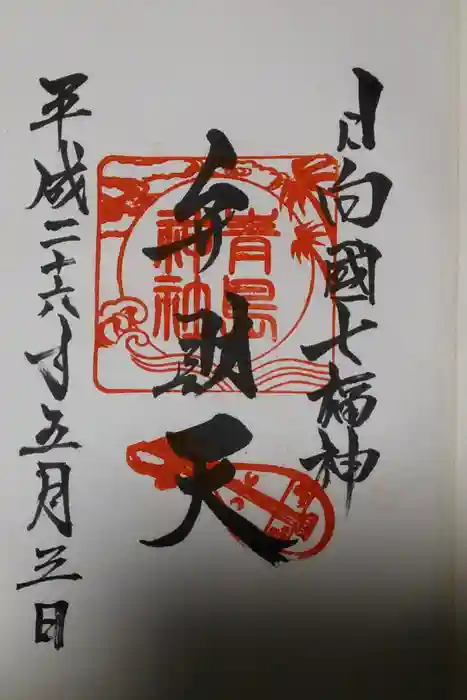 日向國七福神
弁財天
青島神社
平成二十六年五月三日